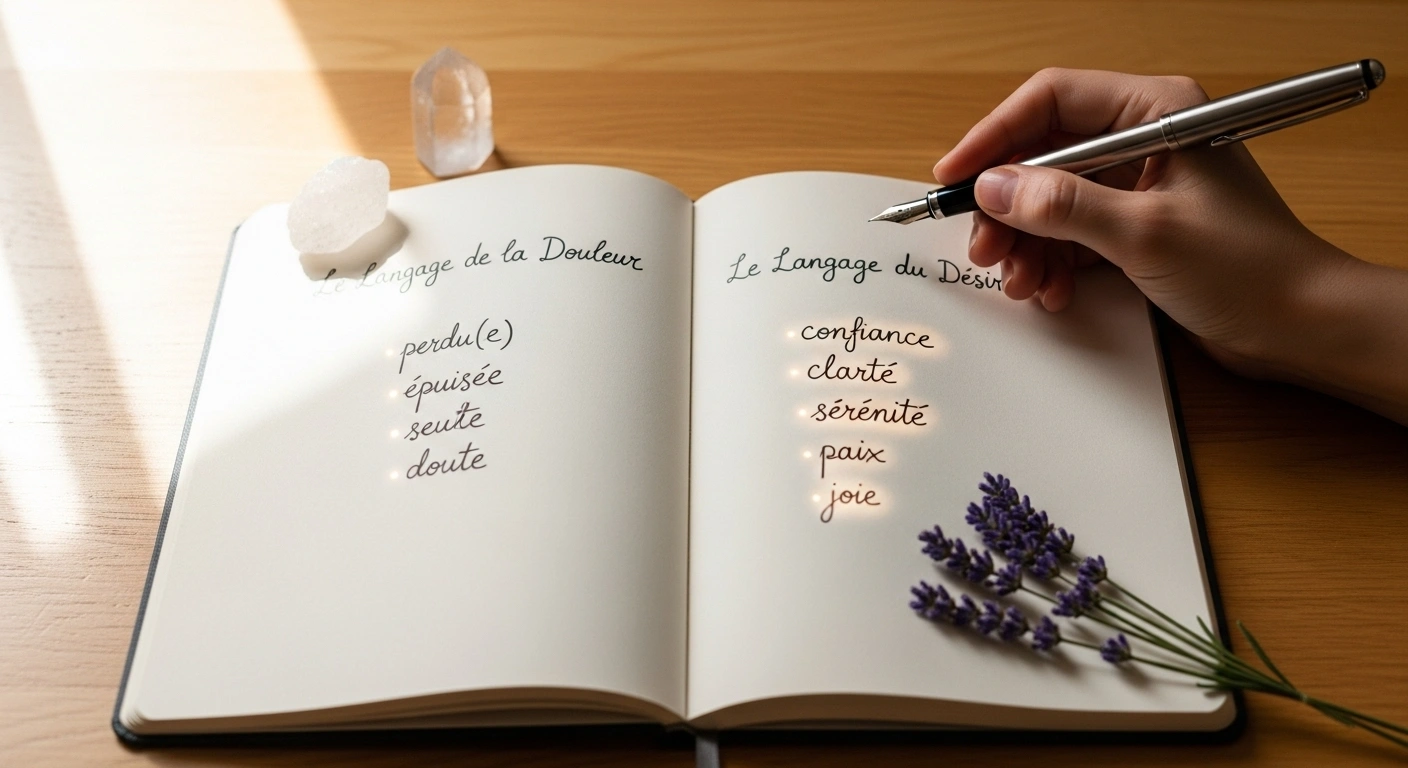 Le Langage de la Douleur
perdu(e)
épuisée
doute
Le Langage du Désir
confiance
clarté
sérénité
paix
joie